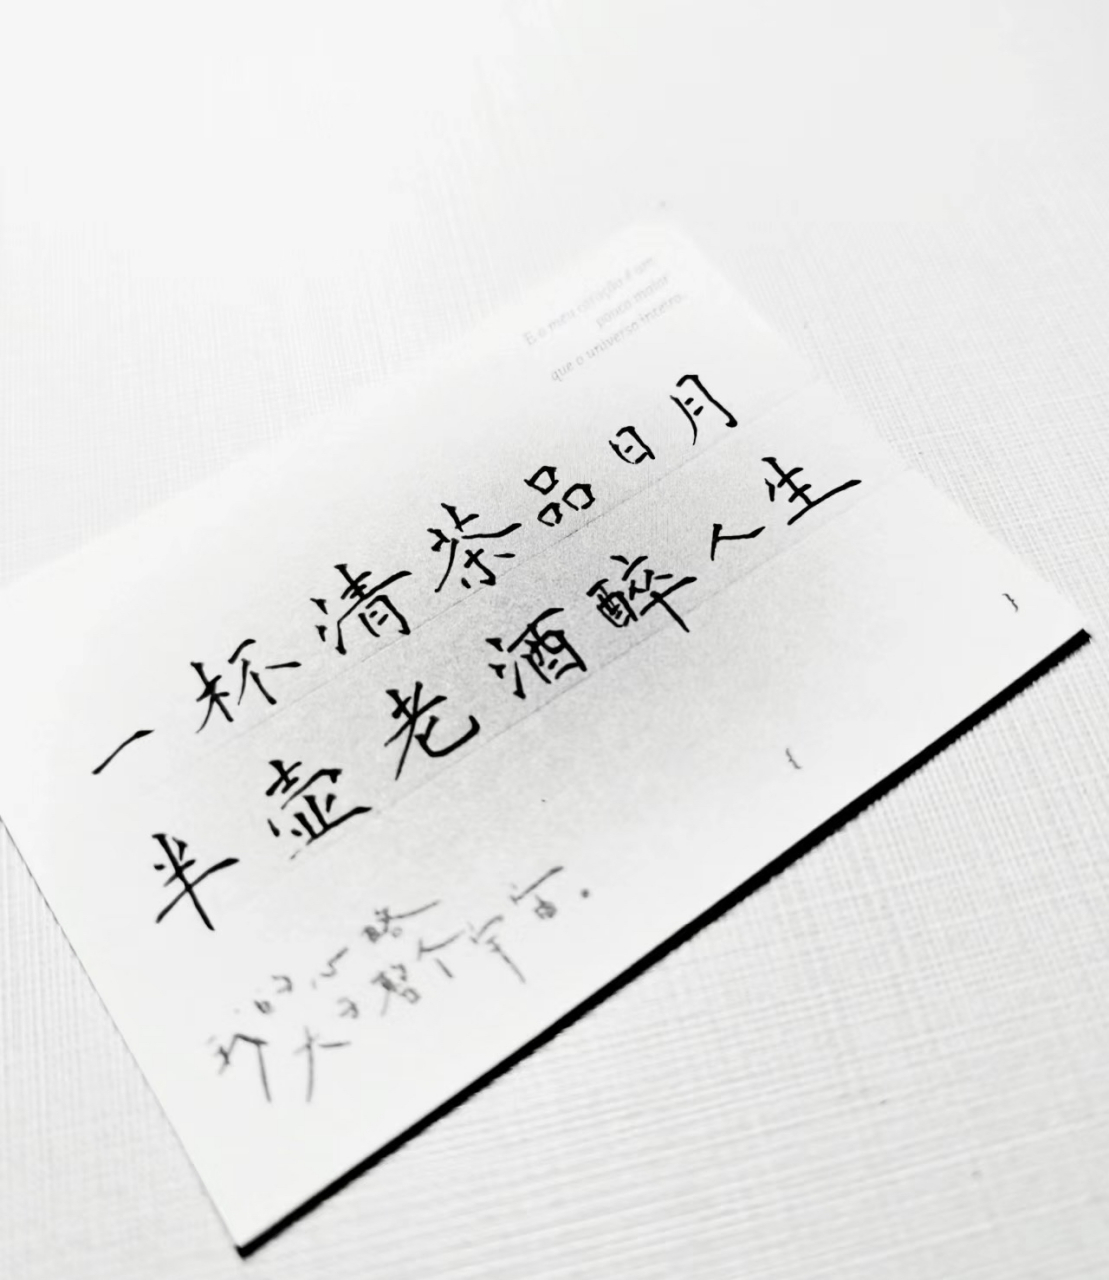 E o meu coração é um
pouco maior
que o universo inteiro.
一杯清茶品日月
半壶老酒醉人生
我的心略
大于整个宇宙.